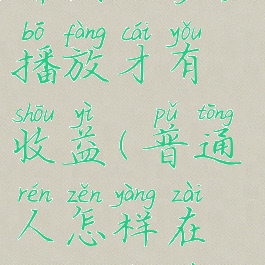 bō fàng cái yǒu
播放才有
shōu yì pǔ tōng
收益(普通
rén zěn yàng zài
人怎样在